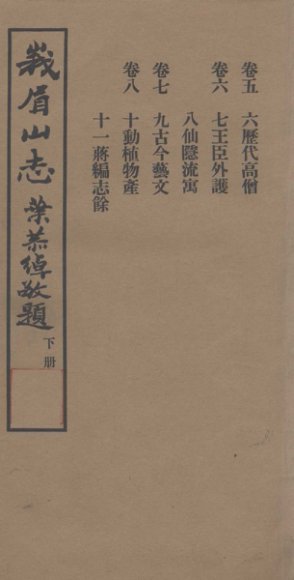 峩眉山志
葉恭綽敬題
下册
卷五 六歷代高僧
卷六 七王臣外護
八仙隱流寓
卷七 九古今藝文
卷八 十動植物產
十一蔣編志餘